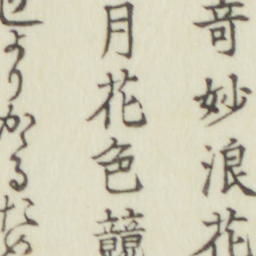 奇妙浪花
月花色競
よりかるた